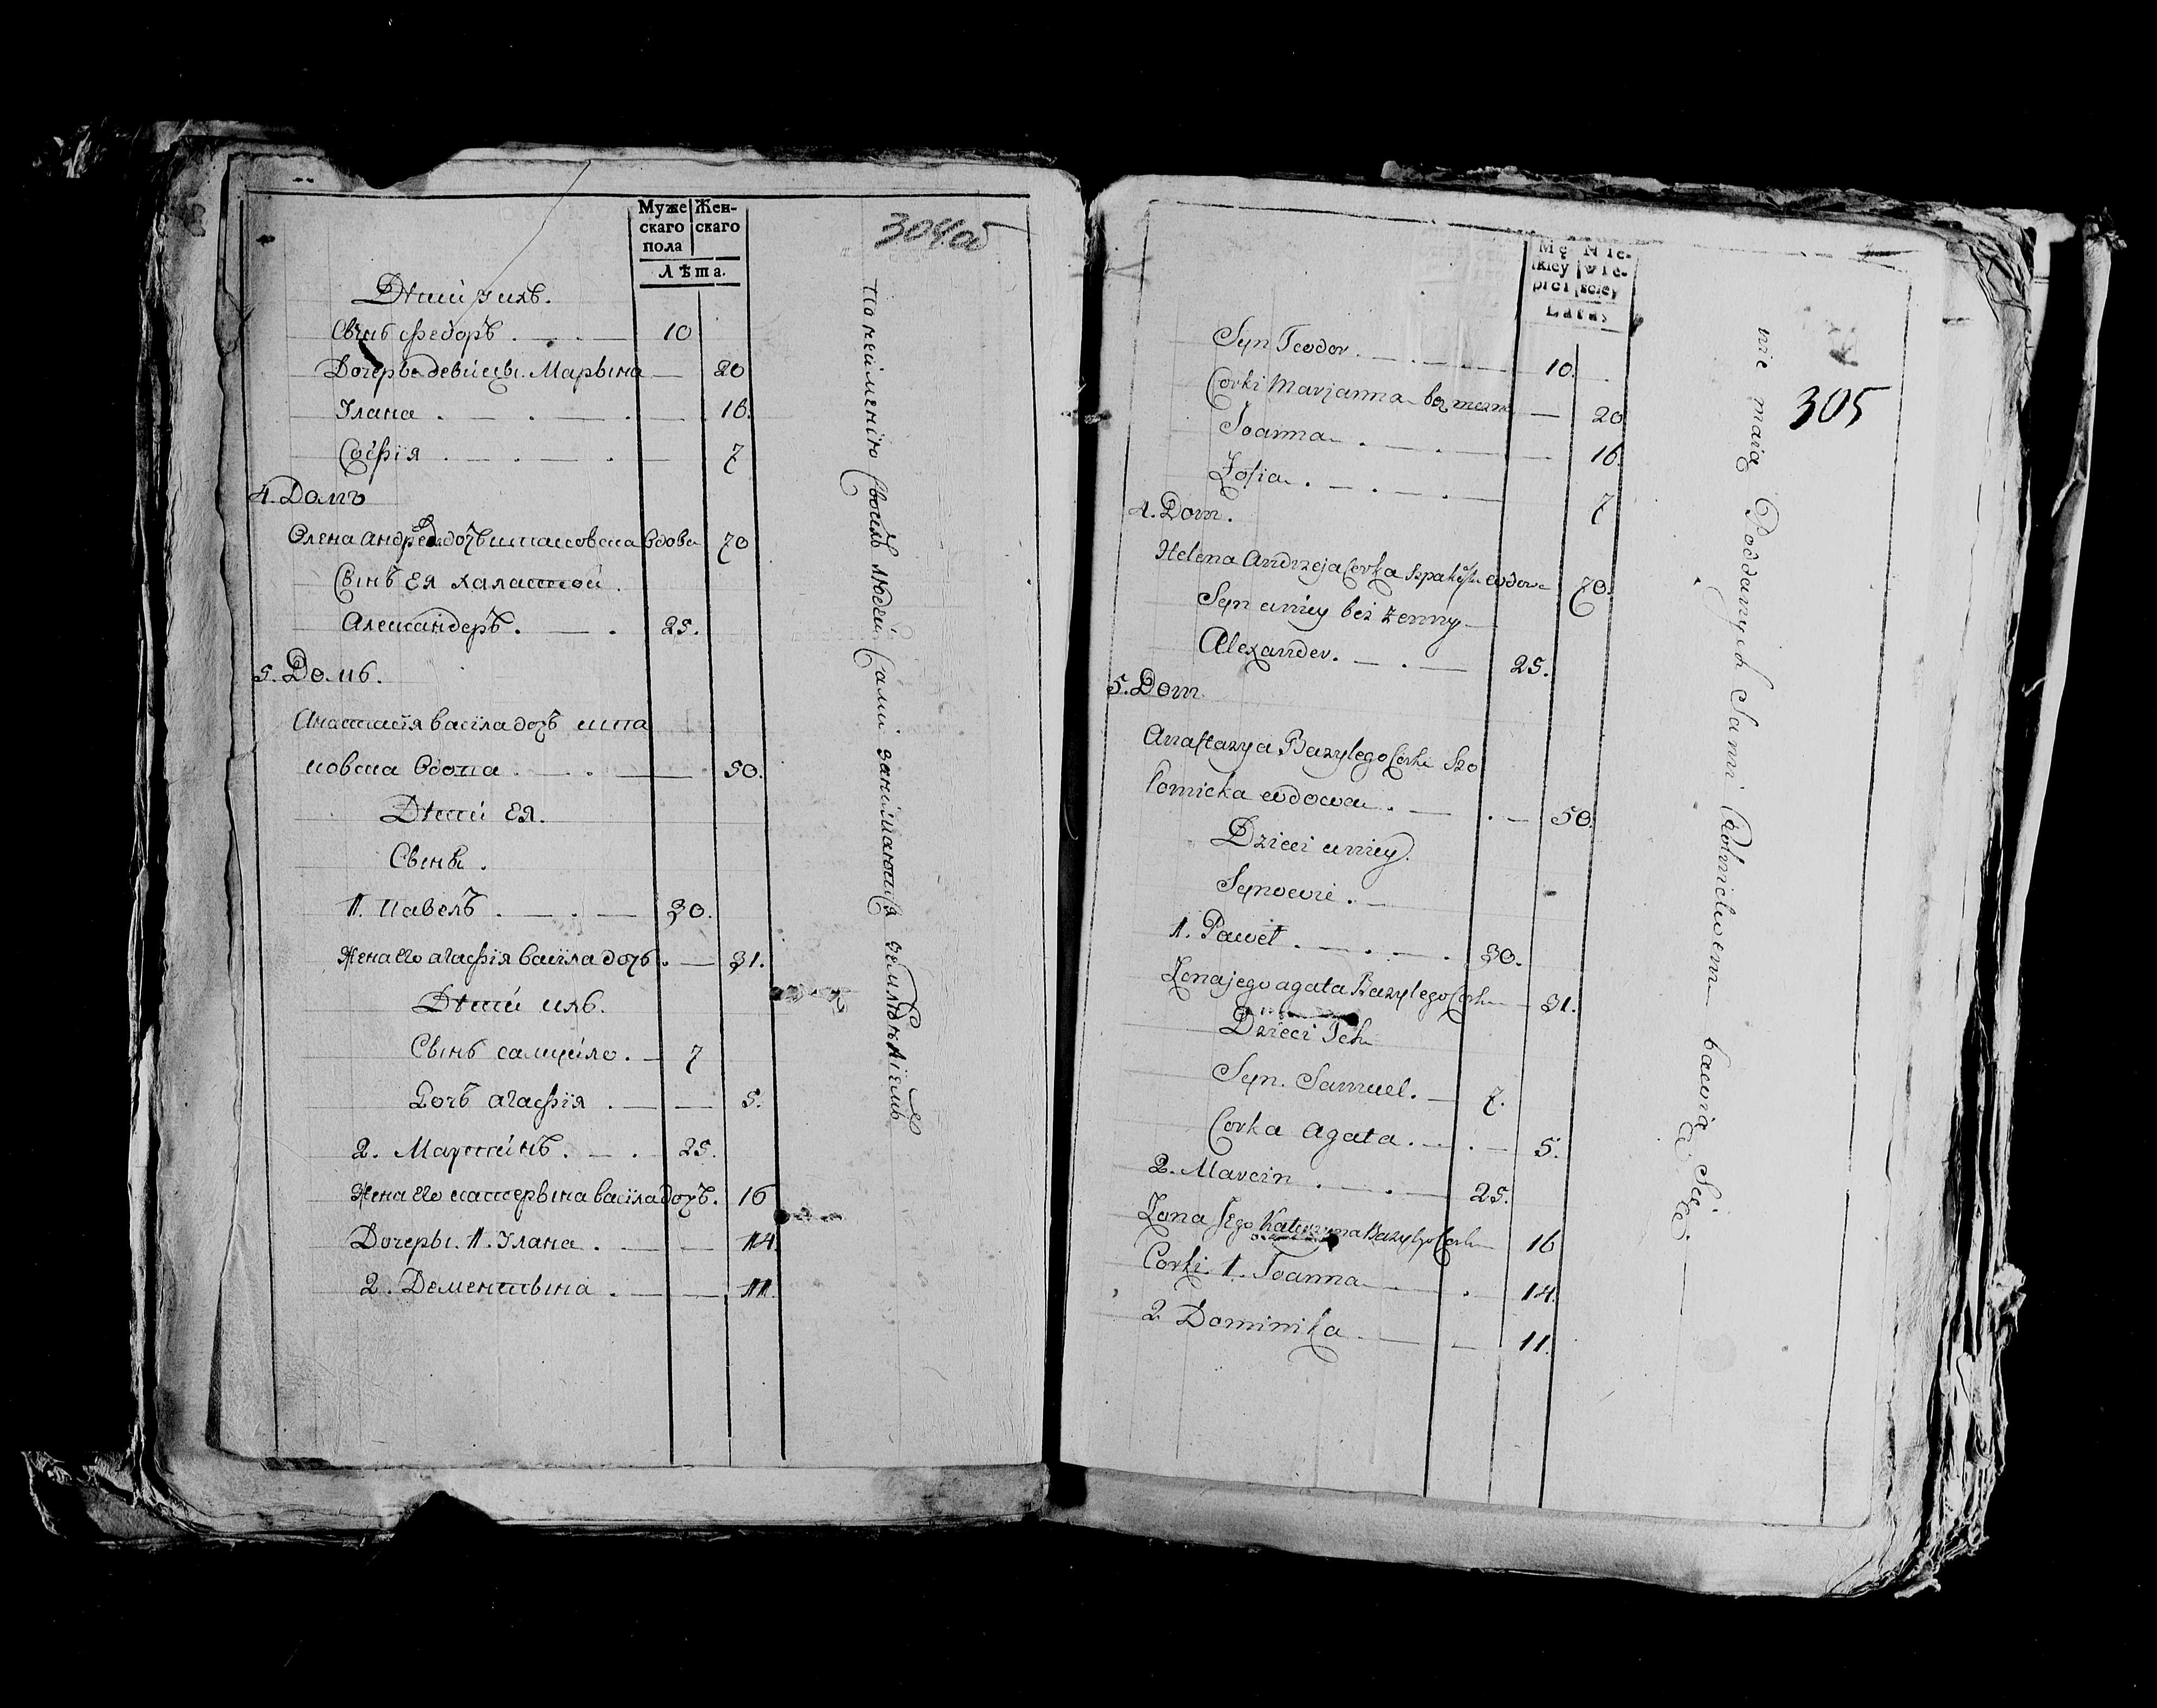 Муже Жен-
скаго скаго
пола
Лѣта.
304об
Дѣти ихъ.
Сынъ Федоръ 10
Дочерьи девицы. Марьяна 20
Улана 16.
Софія 7
4. Домъ
Олена Андрея дочь вдова 70
Сынъ Ея Халастой
Александеръ. 25.
5. Домъ.
Анастасія васила дочь шпа
ковска вдова 50.
Дѣти Ея.
Сыны.
1. Павелъ 30.
Жена Его агафія васила дочь. 31.
Дѣти ихъ.
Сынъ самуйло. 7
Дочь агафія 5.
2. Мартинъ. 25.
Жена Его катерына василадочь. 16
Дочеры. 1. Улана. 14.
2. Дементьына 11.
По неименію Своихъ людей Сами занимаюца земледѣліемъ
Mę Nie-
skiey wie-
płci skiey
Lata
305
Syn Teodor 10.
Corki Marjanna 20
Joanna 16.
Zofia 7
4. Dom.
Helena Andrzeja Corka wdowa 70.
Syn u niey bez żenny
Alexander. 25.
5. Dom
Anastazya Bazylego Corka Szo
komicka wdowa 50.
Dzieci u niey.
Synowie.
1. Paweł 30.
Zona jego agata Bazylego Corka 31.
Dzieci Ich
Syn. Samuel. 7.
Corka Agata. 5.
2. Marcin 25.
Zona Jego Katerzyna Bazylego Corka 16
Corki. 1. Joanna 14.
2 Dominika 11.
nie maią Poddanych Sami Rolnictwem bawią Się